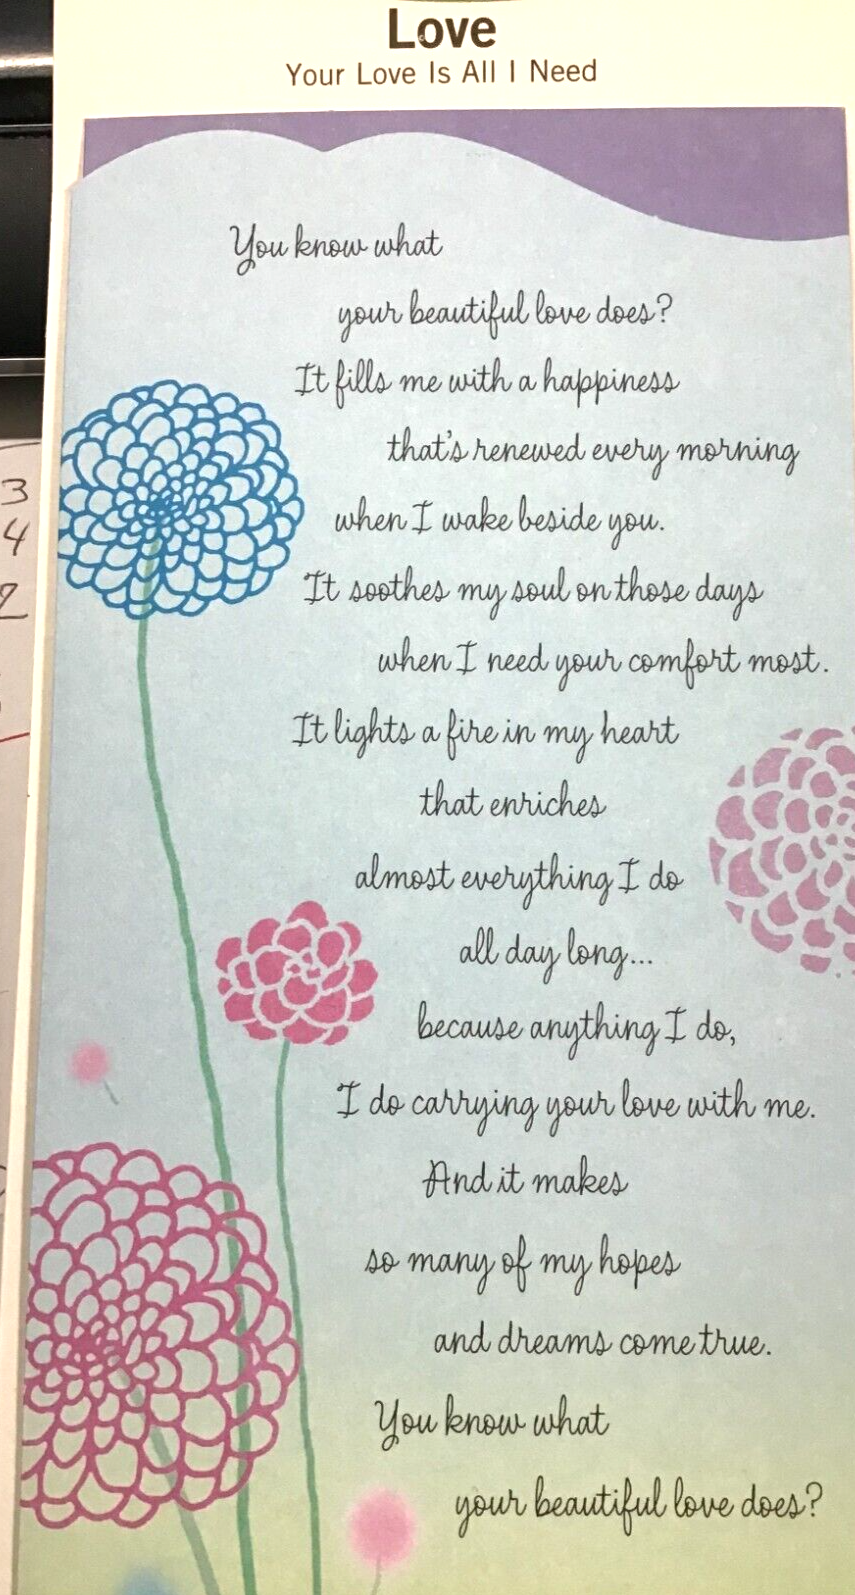 Love
Your Love Is All I Need
You know what
your beautiful love does?
It fills me with a happiness
that's renewed every morning
when I wake beside you.
It soothes my soul on those days
when I need your comfort most.
It lights a fire in my heart
that enriches
almost everything I do
all day long...
because anything I do,
I do carrying your love with me.
And it makes
so many of my hopes
and dreams come true.
You know what
your beautiful love does?
3
4
2